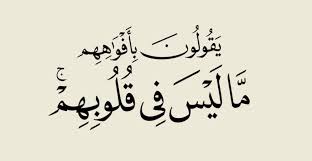 يَقُولُونَ بِأَفْوَاهِهِم
مَّا لَيْسَ فِى قُلُوبِهِمْ ۚ